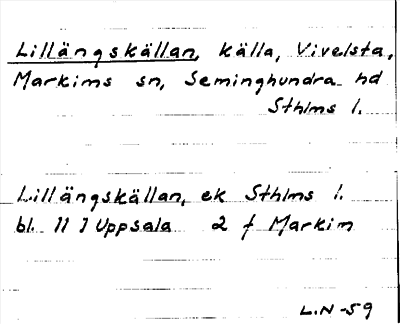 Lillängskällan, källa, Vivelsta,
Markims sn, Seminghundra hd
Sthlms l.
Lillängskällan, ek Sthlms l.
bl. 11 J Uppsala 2 f Markim
L.N -59